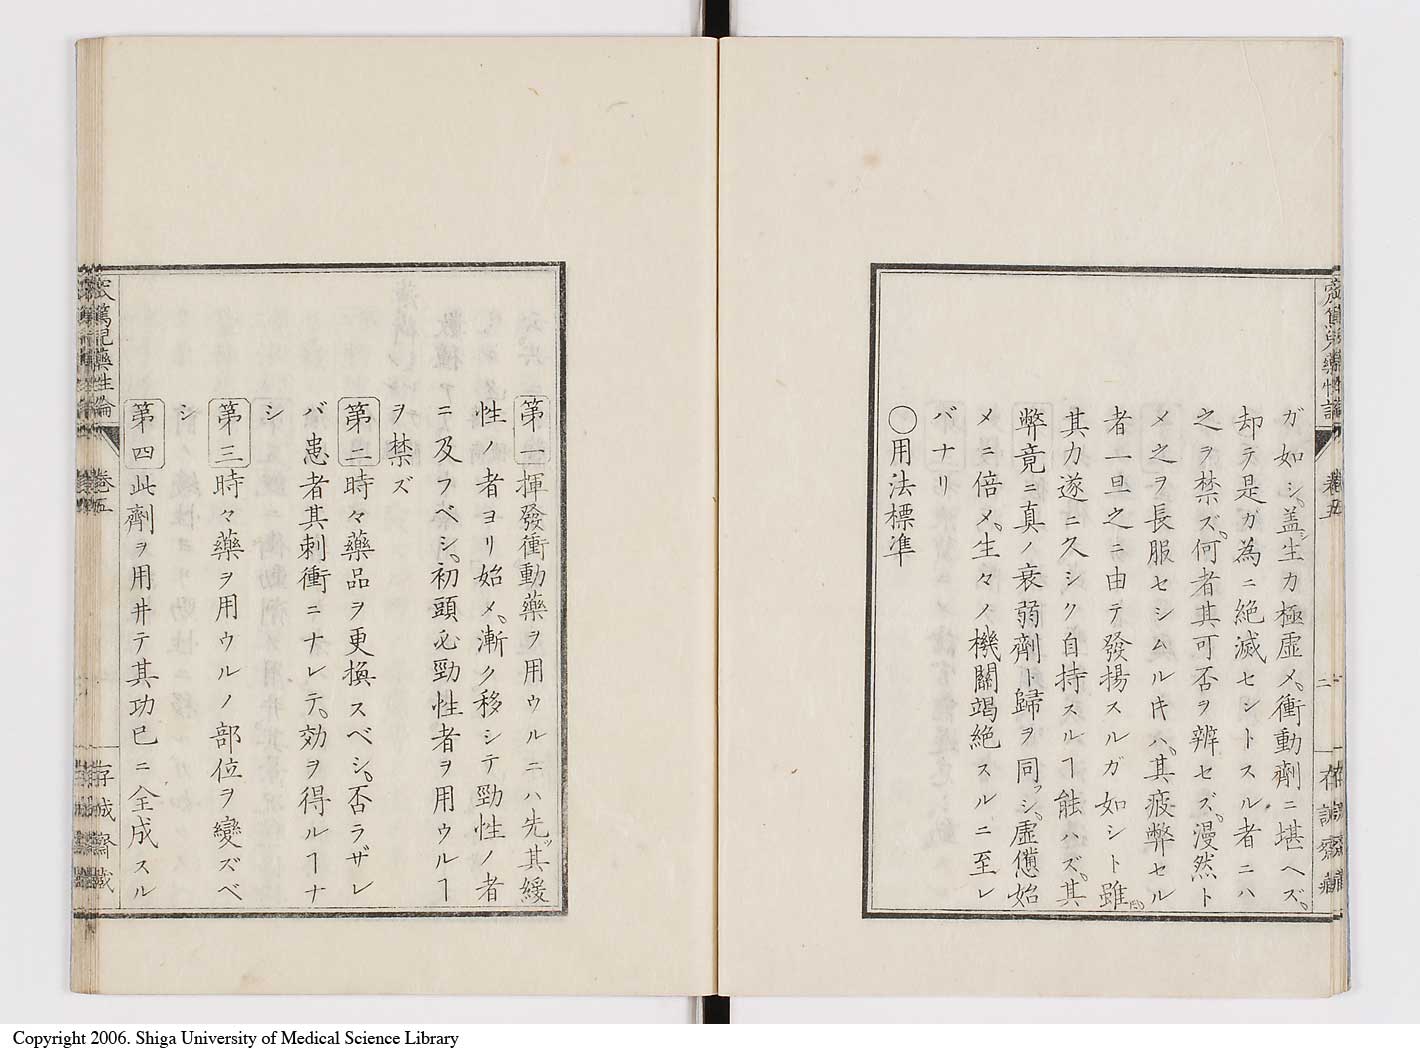 ガ如シ、盖シ生力極虚メ、衝動劑ニ堪ヘズ、
却テ是ガ為ニ絶滅セントスル者ニハ
之ヲ禁ズ、何者其可否ヲ辨セズ、漫然ト
メ之ヲ長服セシムルキハ、其疲弊セル
者一旦之ニ由テ發揚スルガ如シト雖𪜈
其力遂ニ久シク自持スルヿ能ハズ、其
弊竟ニ真ノ衰弱劑ト歸ヲ同ッシ、虚憊始
メニ倍メ、生々ノ機關竭絶スルニ至レ
バナリ
〇用法標準
第一揮發衝動藥ヲ用ウルニハ先ッ其緩
性ノ者ヨリ始メ、漸ク移シテ勁性ノ者
ニ及フベシ、初頭必勁性者ヲ用ウルヿ
ヲ禁ズ
第二時々藥品ヲ更換スベシ、否ラザレ
バ患者其刺衝ニナレテ、効ヲ得ルヿナ
シ
第三時々藥ヲ用ウルノ部位ヲ變ズベ
シ
第四此劑ヲ用井テ其功已ニ全成スル
藥性論
卷五
存誠齋藏
Copyright 2006. Shiga University of Medical Science Library